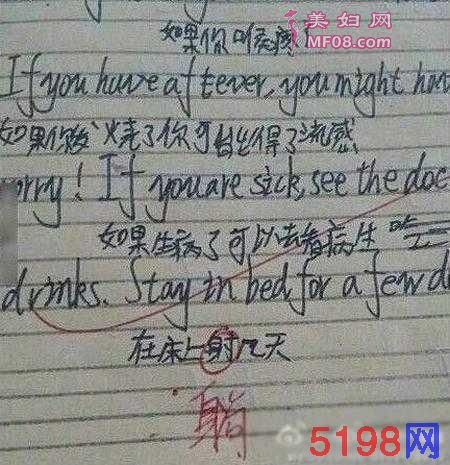 美妇网
MF08.com
如果你
If you have a fever, you might hav
如果你发烧了你可能得了流感
orry! If you are sick, see the doc
如果生病了可以去看病生
drinks. Stay in bed for a few d
在床上射几天
躺
5198网